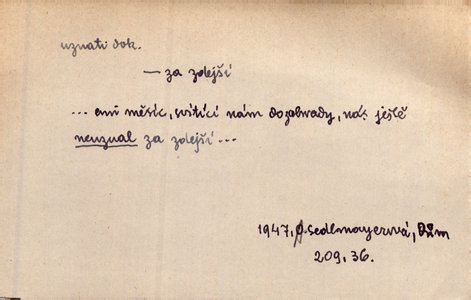 uznati dok.
— za zdejší
... ani měsíc, svítící nám do zahrady, nás ještě
neuznal za zdejší ...
1947, J. Sedlmayerová, Dům
209, 36.